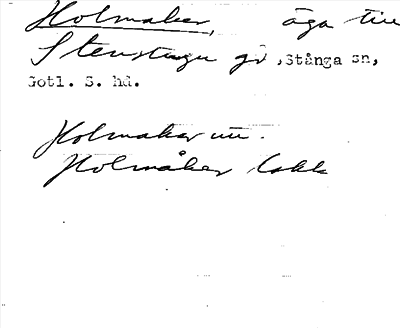 Holmaker, äga till
Stenstugu gd, Stånga sn,
Gotl. S. hd.
Holmaker
Holmåker